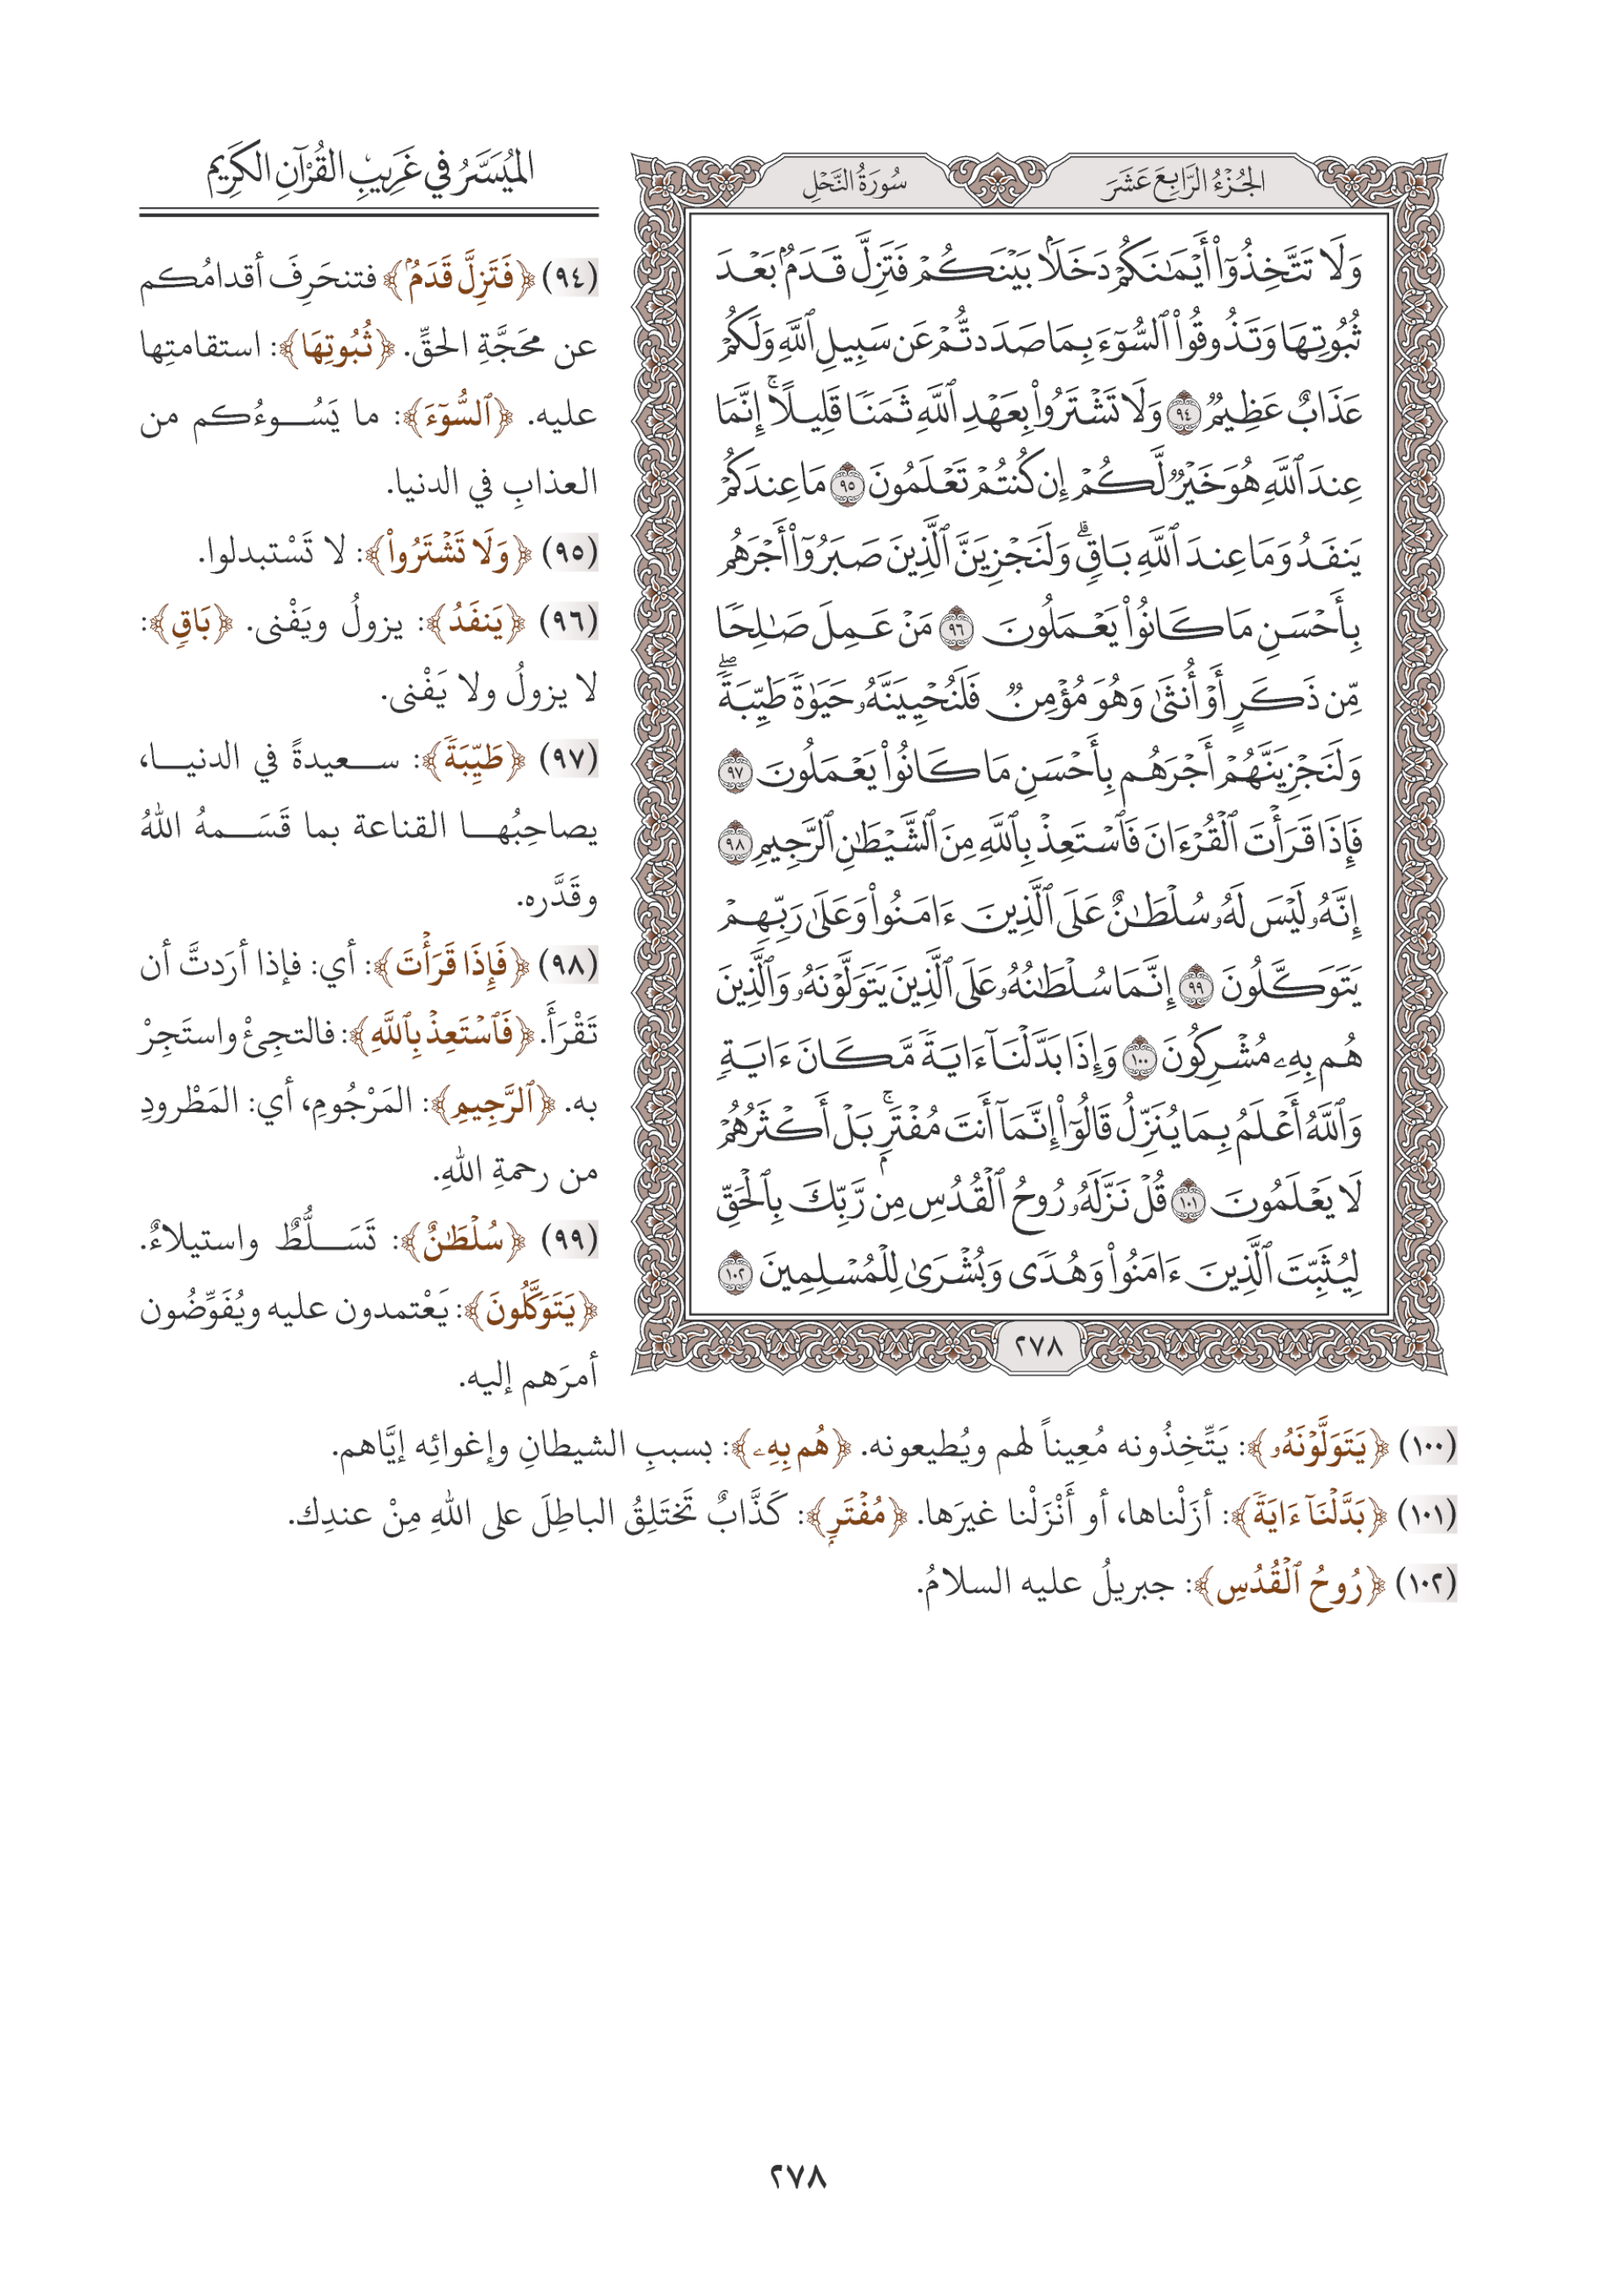 الجُزْءُ الرَّابِعَ عَشَرَ
سُورَةُ النَّحْلِ
وَلَا تَتَّخِذُوٓا۟ أَيْمَٰنَكُمْ دَخَلًۢا بَيْنَكُمْ فَتَزِلَّ قَدَمٌۢ بَعْدَ
ثُبُوتِهَا وَتَذُوقُوا۟ ٱلسُّوٓءَ بِمَا صَدَدتُّمْ عَن سَبِيلِ ٱللَّهِ وَلَكُمْ
عَذَابٌ عَظِيمٌ ٩٤ وَلَا تَشْتَرُوا۟ بِعَهْدِ ٱللَّهِ ثَمَنًا قَلِيلًا ۚ إِنَّمَا
عِندَ ٱللَّهِ هُوَ خَيْرٌ لَّكُمْ إِن كُنتُمْ تَعْلَمُونَ ٩٥ مَا عِندَكُمْ
يَنفَدُ وَمَا عِندَ ٱللَّهِ بَاقٍ ۗ وَلَنَجْزِيَنَّ ٱلَّذِينَ صَبَرُوٓا۟ أَجْرَهُم
بِأَحْسَنِ مَا كَانُوا۟ يَعْمَلُونَ ٩٦ مَنْ عَمِلَ صَٰلِحًا
مِّن ذَكَرٍ أَوْ أُنثَىٰ وَهُوَ مُؤْمِنٌ فَلَنُحْيِيَنَّهُۥ حَيَوٰةً طَيِّبَةً ۖ
وَلَنَجْزِيَنَّهُمْ أَجْرَهُم بِأَحْسَنِ مَا كَانُوا۟ يَعْمَلُونَ ٩٧
فَإِذَا قَرَأْتَ ٱلْقُرْءَانَ فَٱسْتَعِذْ بِٱللَّهِ مِنَ ٱلشَّيْطَٰنِ ٱلرَّجِيمِ ٩٨
إِنَّهُۥ لَيْسَ لَهُۥ سُلْطَٰنٌ عَلَى ٱلَّذِينَ ءَامَنُوا۟ وَعَلَىٰ رَبِّهِمْ
يَتَوَكَّلُونَ ٩٩ إِنَّمَا سُلْطَٰنُهُۥ عَلَى ٱلَّذِينَ يَتَوَلَّوْنَهُۥ وَٱلَّذِينَ
هُم بِهِۦ مُشْرِكُونَ ١٠٠ وَإِذَا بَدَّلْنَآ ءَايَةً مَّكَانَ ءَايَةٍ
وَٱللَّهُ أَعْلَمُ بِمَا يُنَزِّلُ قَالُوٓا۟ إِنَّمَآ أَنتَ مُفْتَرٍۭ ۚ بَلْ أَكْثَرُهُمْ
لَا يَعْلَمُونَ ١٠١ قُلْ نَزَّلَهُۥ رُوحُ ٱلْقُدُسِ مِن رَّبِّكَ بِٱلْحَقِّ
لِيُثَبِّتَ ٱلَّذِينَ ءَامَنُوا۟ وَهُدًى وَبُشْرَىٰ لِلْمُسْلِمِينَ ١٠٢
٢٧٨
المُيَسَّرُ في غَرِيبِ القُرْآنِ الكَرِيمِ
(٩٤) ﴿فَتَزِلَّ قَدَمٌۢ﴾ فتنحَرِفَ أقدامُكم
عن محَجَّةِ الحقِّ. ﴿ثُبُوتِهَا﴾: استقامتِها
عليه. ﴿ٱلسُّوٓءَ﴾: ما يَسُوءُكم من
العذابِ في الدنيا.
(٩٥) ﴿وَلَا تَشْتَرُوا۟﴾: لا تَسْتبدلوا.
(٩٦) ﴿يَنفَدُ﴾: يزولُ ويَفْنى. ﴿بَاقٍ﴾:
لا يزولُ ولا يَفْنى.
(٩٧) ﴿طَيِّبَةً﴾: سعيدةً في الدنيا،
يصاحِبُها القناعة بما قَسَمهُ اللهُ
وقَدَّره.
(٩٨) ﴿فَإِذَا قَرَأْتَ﴾: أي: فإذا أرَدتَّ أن
تَقْرَأَ. ﴿فَٱسْتَعِذْ بِٱللَّهِ﴾: فالتجِئْ واستَجِرْ
به. ﴿ٱلرَّجِيمِ﴾: المَرْجُومِ، أي: المَطْرودِ
من رحمةِ اللهِ.
(٩٩) ﴿سُلْطَٰنٌ﴾: تَسَلُّطٌ واستيلاءٌ.
﴿يَتَوَكَّلُونَ﴾: يَعْتمدون عليه ويُفَوِّضُون
أمرَهم إليه.
(١٠٠) ﴿يَتَوَلَّوْنَهُۥ﴾: يَتَّخِذُونه مُعِيناً لهم ويُطيعونه. ﴿هُم بِهِۦ﴾: بسببِ الشيطانِ وإغوائِه إيَّاهم.
(١٠١) ﴿بَدَّلْنَآ ءَايَةً﴾: أزَلْناها، أو أَنْزَلْنا غيرَها. ﴿مُفْتَرٍۭ﴾: كَذَّابٌ تَختَلِقُ الباطِلَ على اللهِ مِنْ عندِك.
(١٠٢) ﴿رُوحُ ٱلْقُدُسِ﴾: جبريلُ عليه السلامُ.
٢٧٨